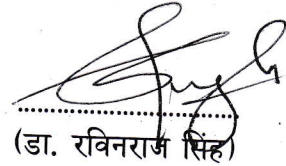 (डा. रविनराज सिंह)